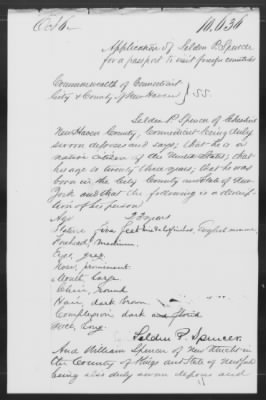 Oct 6
10,636
Application of Selden P. Spencer
for a passport to visit foreign countries
Commonwealth of Connecticut
City & County of New Haven } SS.
Selden P. Spencer of Cheshire
New Haven County, Connecticut being duly
sworn deposes and says; that he is a
native citizen of the United States; that
his age is twenty three years; that he was
born in the City County and State of New
York and that the following is a descrip-
tion of his person
Age 23 years
Stature five feet English measure
Forehead, medium.
Eyes, gray.
Nose, prominent
Mouth large
Chin, round
Hair, dark brown
Complexion dark and florid
Face, long.
Selden P. Spencer.
And William Spencer of New Utrecht in
the County of Kings and State of New York
being also duly sworn deposes and